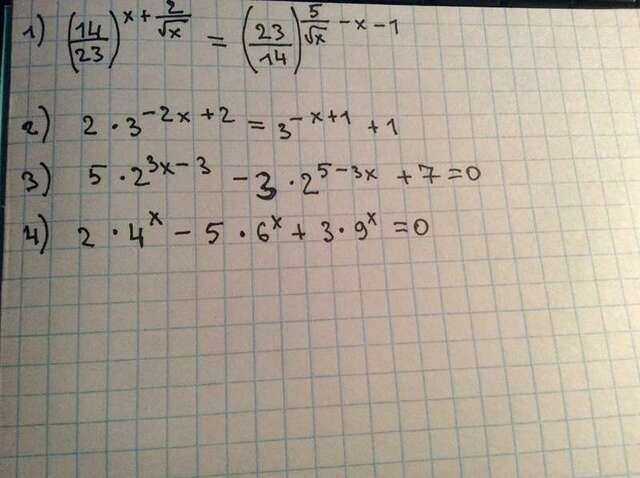 1) (14/23)^(x + 2/√x) = (23/14)^(5/√x - x - 1)
2) 2 · 3^(-2x + 2) = 3^(-x + 1) + 1
3) 5 · 2^(3x - 3) - 3 · 2^(5 - 3x) + 7 = 0
4) 2 · 4^x - 5 · 6^x + 3 · 9^x = 0